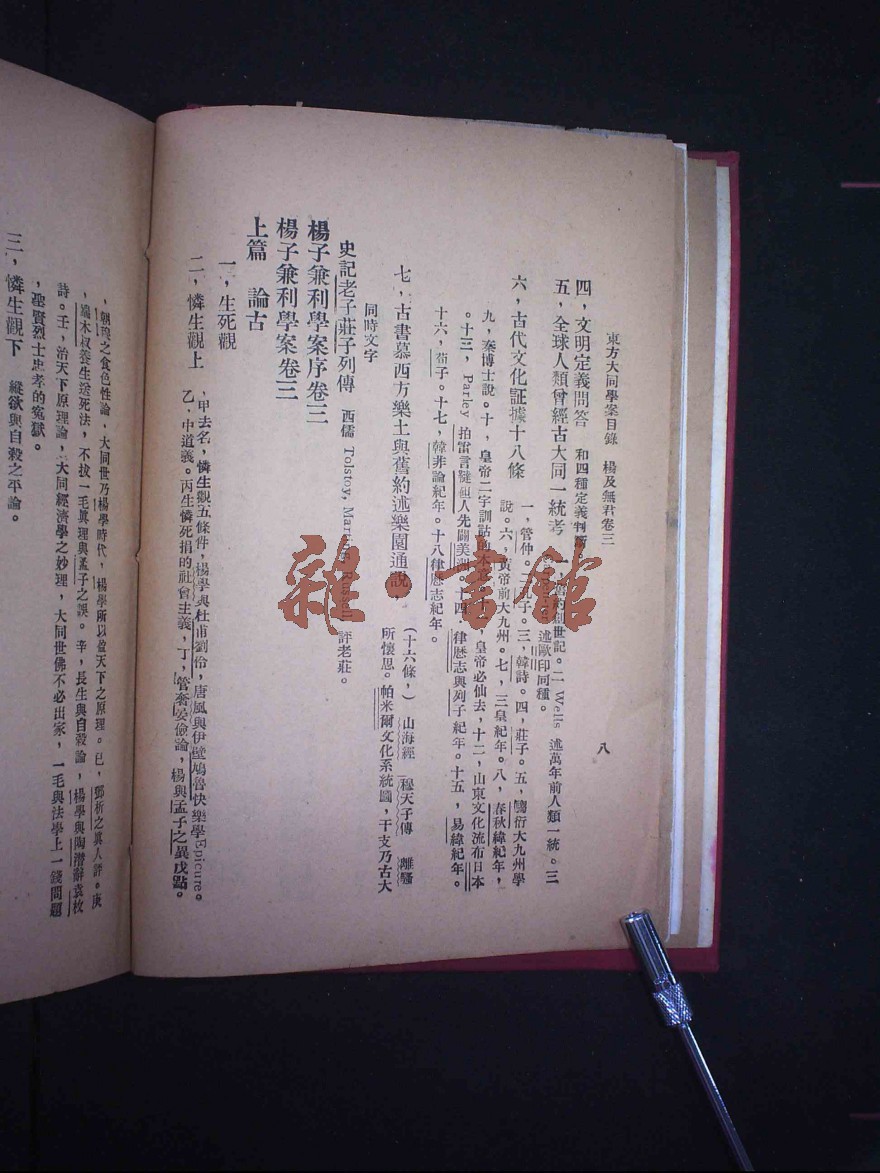 東方大同學案目錄　楊及無君卷三　八
四，文明定義問答　和四種定義判
五，全球人類曾經古大同一統考　一，舊約創世記。二 Wells 述萬年前人類一統。三
述歐印同種。
六，古代文化証據十八條　一，管仲。二，子。三，韓詩。四，莊子。五，鄒衍大九州學
說。六，黃帝前大九州。七，三皇紀年。八，春秋緯紀年，
九，秦博士說。十，皇帝二字訓詁 皇帝必仙去，十二，山東文化流布日本
。十三，Parley 拍雷言韃靼人先闢美洲 十四，律曆志與列子紀年。十五，易緯紀年。
十六，荀子。十七，韓非論紀年。十八律曆志紀年。
七，古書慕西方樂土與舊約述樂園通說，（十六條，）山海經　穆天子傳　離騷
所懷思。帕米爾文化系統圖，干支乃古大
同時文字
史記老子莊子列傳　西儒 Tolstoy, Russell 評老莊。
楊子兼利學案序卷三
楊子兼利學案卷三
上篇　論古
一，生死觀
二，憐生觀上　，甲去名，憐生觀五條件，楊學與杜甫劉伶，唐風與伊壁鳩魯快樂學Epicure。
乙，中道義。丙生憐死捐的社會主義，丁，管奢晏儉論，楊與孟子之異戊點。
，朝穆之食色性論，大同世乃楊學時代，楊學所以盈天下之原理。已，鄧析之眞人評。庚
，端木叔養生送死法，不拔一毛眞理與孟子之誤。辛，長生與自殺論，楊學與陶潛辭袁枚
詩。壬，治天下原理論，大同經濟學之妙理，大同世佛不必出家，一毛與法學上一錢問題
，聖賢烈士忠孝的寃獄。
三，憐生觀下　縱欲與自殺之平論。
雜·書館